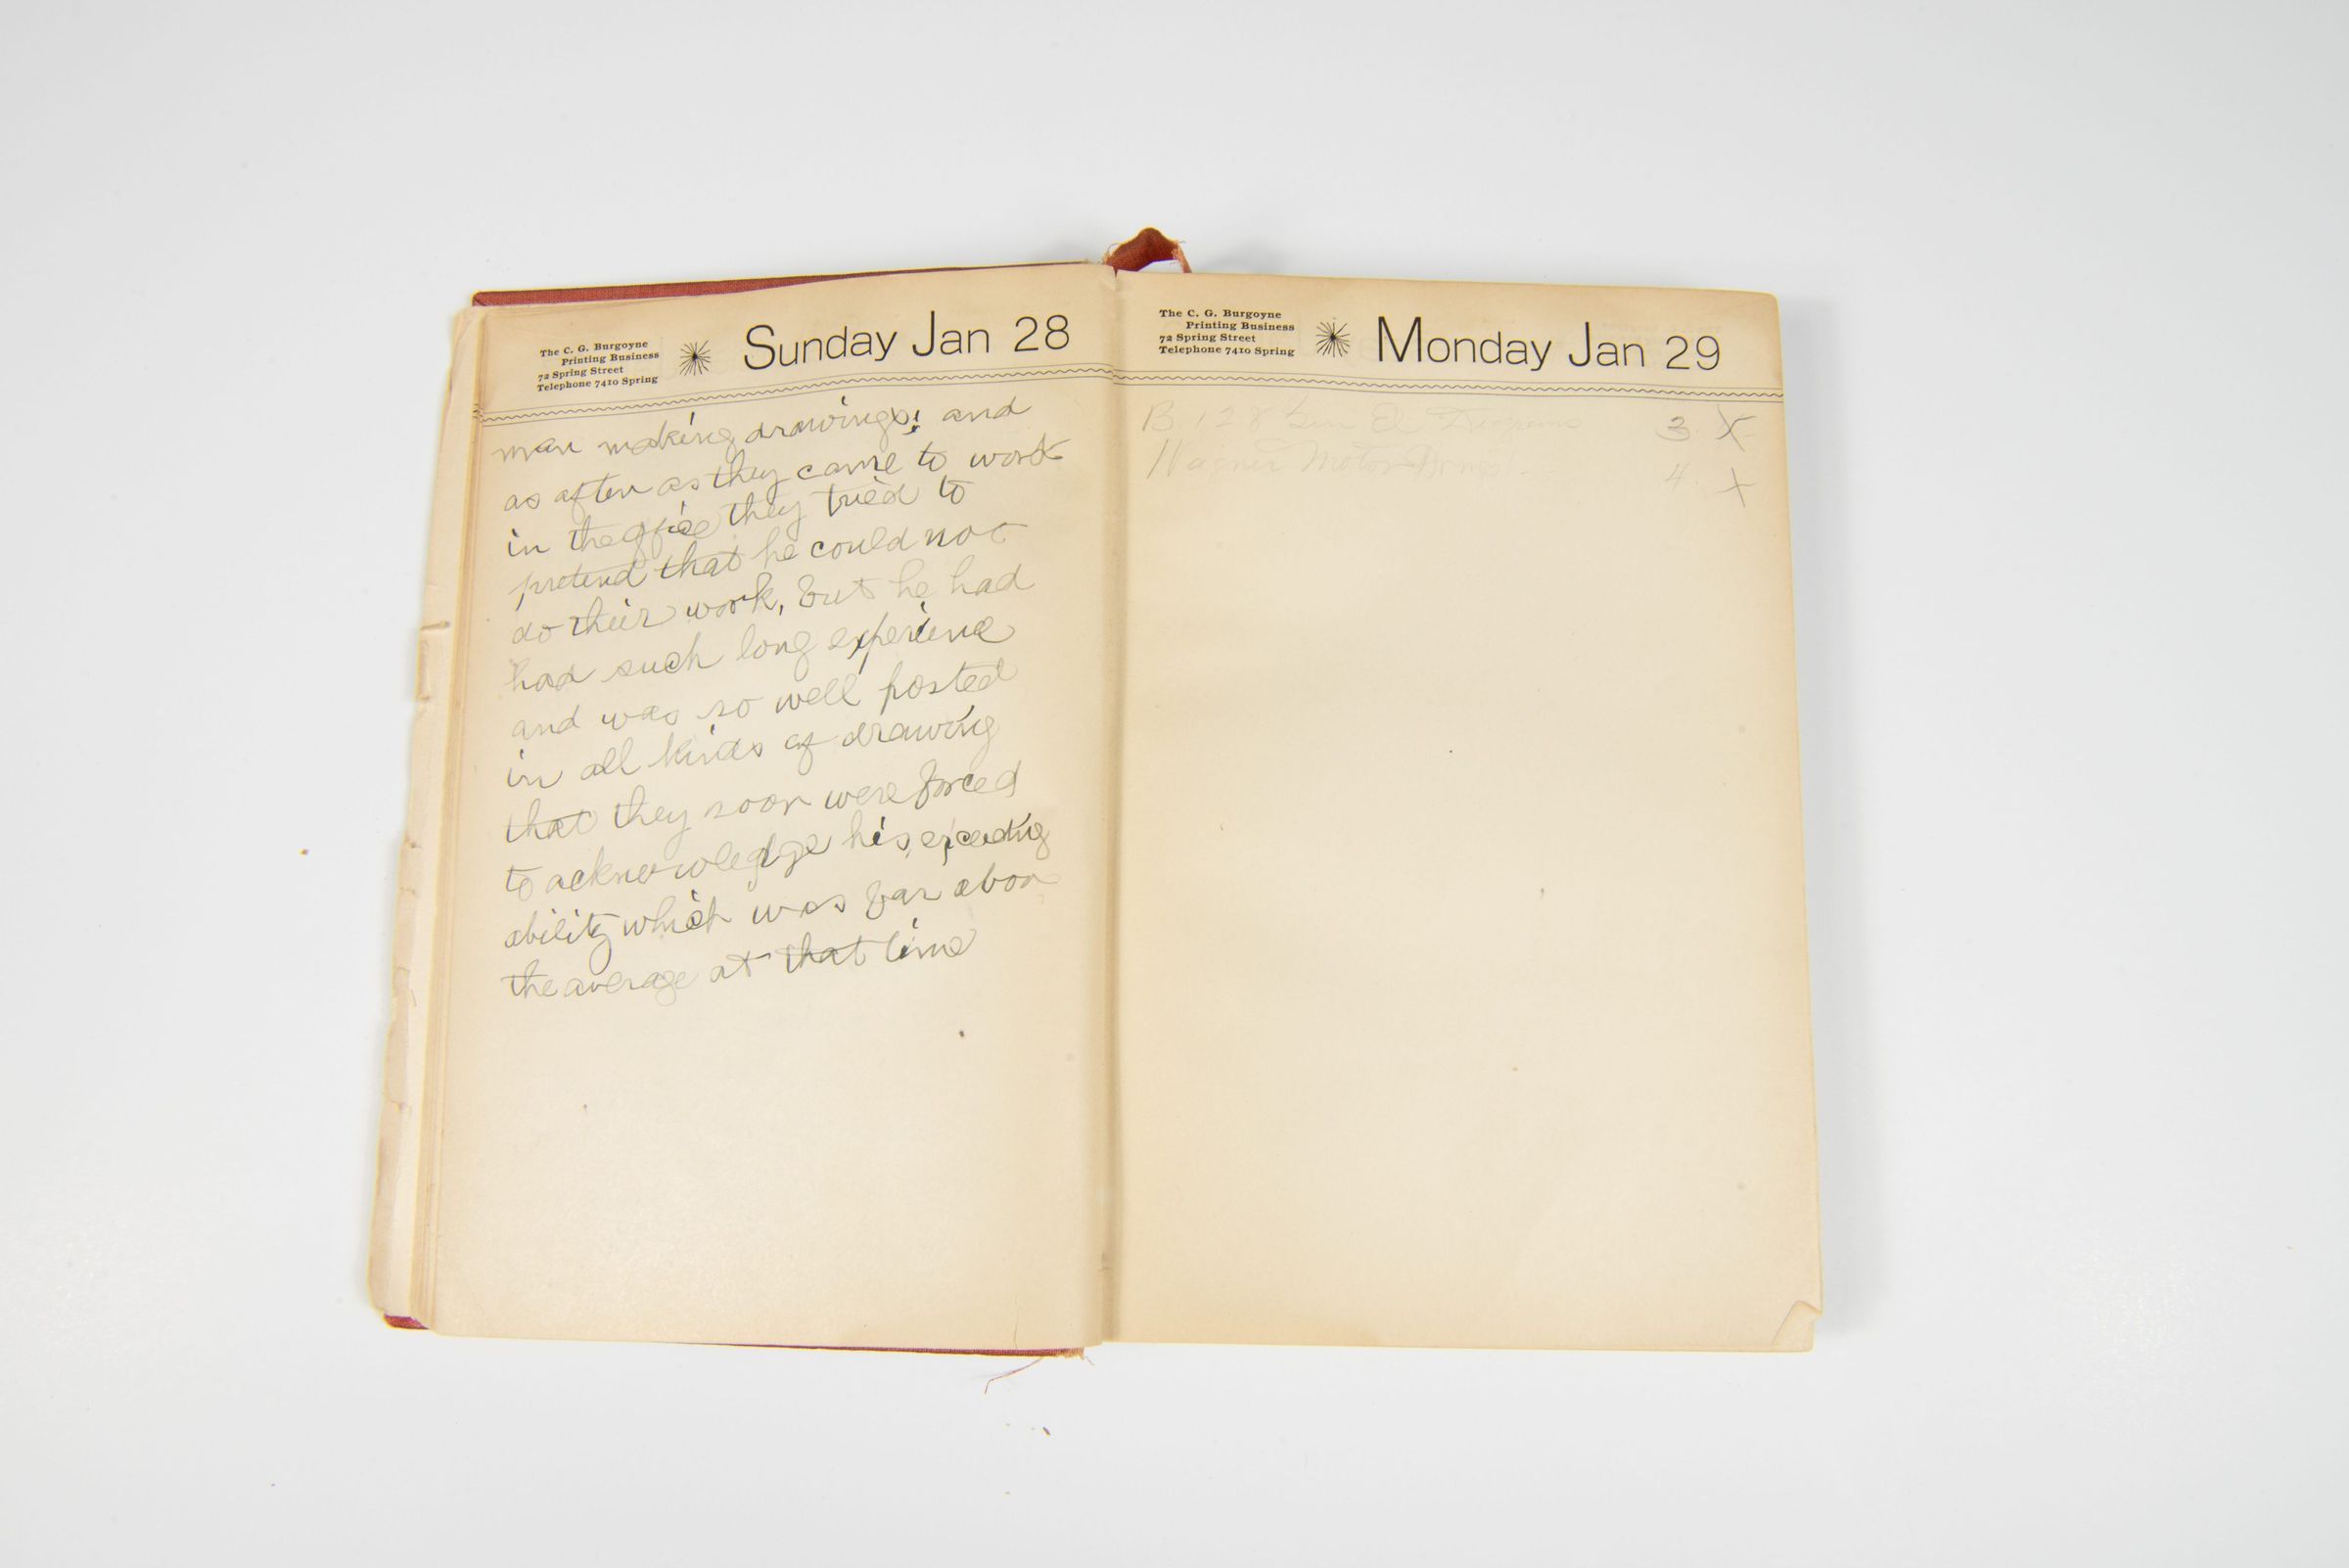 The C. G. Burgoyne
Printing Business
72 Spring Street
Telephone 7410 Spring
Sunday Jan 28
man making drawings; and
as often as they came to work
in the office they tried to
pretend that he could not
do their work, but he had
had such long experience
and was so well posted
in all kinds of drawing
that they soon were forced
to acknowledge his exceeding
ability which was far above
the average at that time
The C. G. Burgoyne
Printing Business
72 Spring Street
Telephone 7410 Spring
Monday Jan 29
B 128 3 X
Wagner Motor 4 X